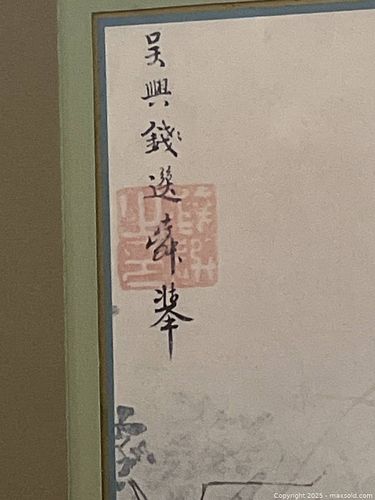 吴興錢選舜舉
Copyright © 2025 - maxsold.com